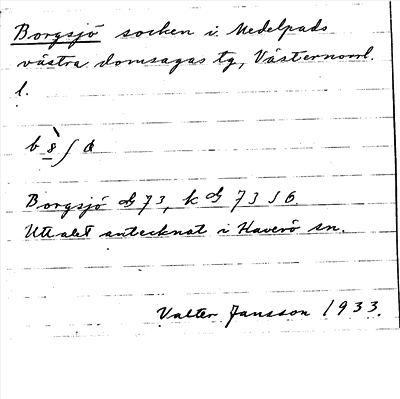 Borgsjö socken i Medelpads
västra domsagas tg, Västernorrl.
l.
Borgsjö db 73, k db 73 s 6.
Uttalet antecknat i Haverö sn.
Valter Jansson 1933.